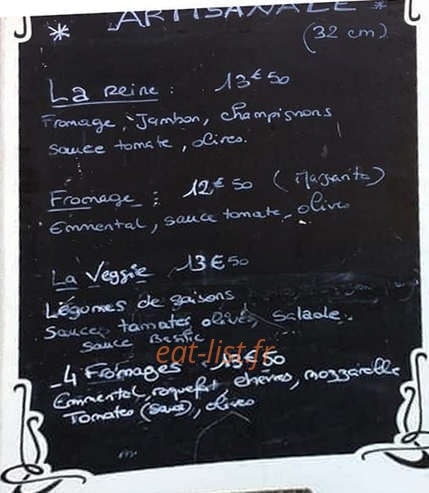 * ARTISANALE *
(32 cm)
La Reine : 13€50
Fromage, Jambon, champignons
sauce tomate, olives.
Fromage : 12€50 (Margarita)
Emmental, sauce tomate, olives
La Veggie 13€50
Légumes de saisons
Sauce tomates olives, Salade.
sauce
eat-list.fr
4 Fromages 13€50
Emmental, roquefort chèvres, mozzarelle
Tomates (sauce), olives